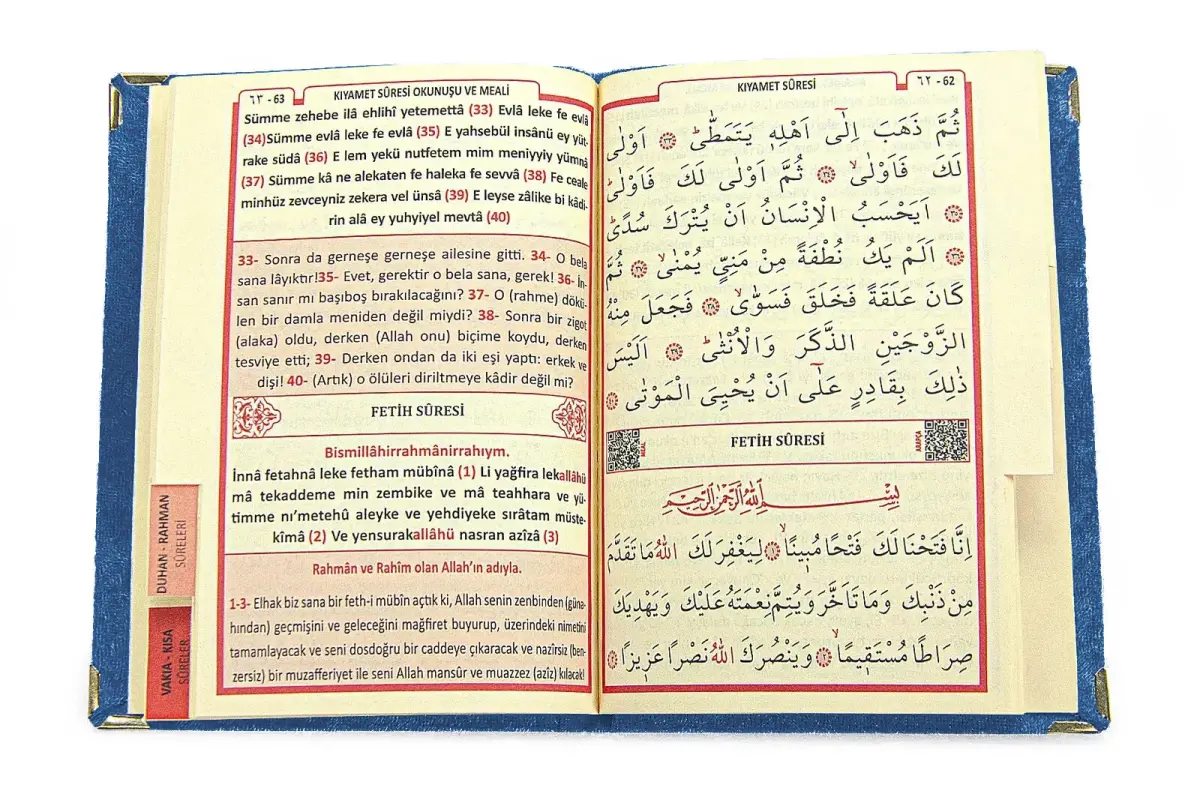 ٦٣ - 63
KIYAMET SÛRESİ OKUNUŞU VE MEALİ
Sümme zehebe ilâ ehlihî yetemettâ (33) Evlâ leke fe evlâ
(34)Sümme evlâ leke fe evlâ (35) E yahsebül insânü ey yüt-
rake südâ (36) E lem yekü nutfetem mim meniyyiy yümnâ
(37) Sümme kâ ne alekaten fe haleka fe sevvâ (38) Fe ceale
minhüz zevceyniz zekera vel ünsâ (39) E leyse zâlike bi kâdi-
rin alâ ey yuhyiyel mevtâ (40)
33- Sonra da gerneşe gerneşe ailesine gitti. 34- O bela
sana lâyıktır!35- Evet, gerektir o bela sana, gerek! 36- İn-
san sanır mı başıboş bırakılacağını? 37- O (rahme) dökü-
len bir damla meniden değil miydi? 38- Sonra bir zigot
(alaka) oldu, derken (Allah onu) biçime koydu, derken
tesviye etti; 39- Derken ondan da iki eşi yaptı: erkek ve
dişi! 40- (Artık) o ölüleri diriltmeye kâdir değil mi?
FETİH SÛRESİ
Bismillâhirrahmânirrahıym.
İnnâ fetahnâ leke fetham mübînâ (1) Li yağfira lekallâhü
mâ tekaddeme min zembike ve mâ teahhara ve yü-
timme nı’metehû aleyke ve yehdiyeke sırâtam müste-
kîmâ (2) Ve yensurakallâhü nasran azîzâ (3)
Rahmân ve Rahîm olan Allah’ın adıyla.
1-3- Elhak biz sana bir feth-i mübîn açtık ki, Allah senin zenbinden (güna-
hından) geçmişini ve geleceğini mağfiret buyurup, üzerindeki nimetini
tamamlayacak ve seni dosdoğru bir caddeye çıkaracak ve nazirsiz (ben-
zersiz) bir muzafferiyet ile seni Allah mansûr ve muazzez (azîz) kılacak!
DUHAN - RAHMAN
SÛRELERİ
VAKIA - KISA
SÛRELER
KIYAMET SÛRESİ
٦٢ - 62
ثُمَّ ذَهَبَ اِلٰٓى اَهْلِه۪ يَتَمَطّٰىۜ ﴿٣٣﴾ اَوْلٰى
لَكَ فَاَوْلٰىۙ ﴿٣٤﴾ ثُمَّ اَوْلٰى لَكَ فَاَوْلٰىۜ
﴿٣٥﴾ اَيَحْسَبُ الْاِنْسَانُ اَنْ يُتْرَكَ سُدًىۜ
﴿٣٦﴾ اَلَمْ يَكُ نُطْفَةً مِنْ مَنِيٍّ يُمْنٰىۙ ﴿٣٧﴾ ثُمَّ
كَانَ عَلَقَةً فَخَلَقَ فَسَوّٰىۙ ﴿٣٨﴾ فَجَعَلَ مِنْهُ
الزَّوْجَيْنِ الذَّكَرَ وَالْاُنْثٰىۜ ﴿٣٩﴾ اَلَيْسَ
ذٰلِكَ بِقَادِرٍ عَلٰٓى اَنْ يُحْيِيَ الْمَوْتٰى ﴿٤٠﴾
MEAL
FETİH SÛRESİ
ARAPÇA
بِسْمِ اللّٰهِ الرَّحْمٰنِ الرَّحِيمِ
اِنَّا فَتَحْنَا لَكَ فَتْحًا مُب۪ينًاۙ ﴿١﴾ لِيَغْفِرَ لَكَ اللّٰهُ مَا تَقَدَّمَ
مِنْ ذَنْبِكَ وَمَا تَاَخَّرَ وَيُتِمَّ نِعْمَتَهُ عَلَيْكَ وَيَهْدِيَكَ
صِرَاطًا مُسْتَق۪يمًاۙ ﴿٢﴾ وَيَنْصُرَكَ اللّٰهُ نَصْرًا عَز۪يزًا ﴿٣﴾